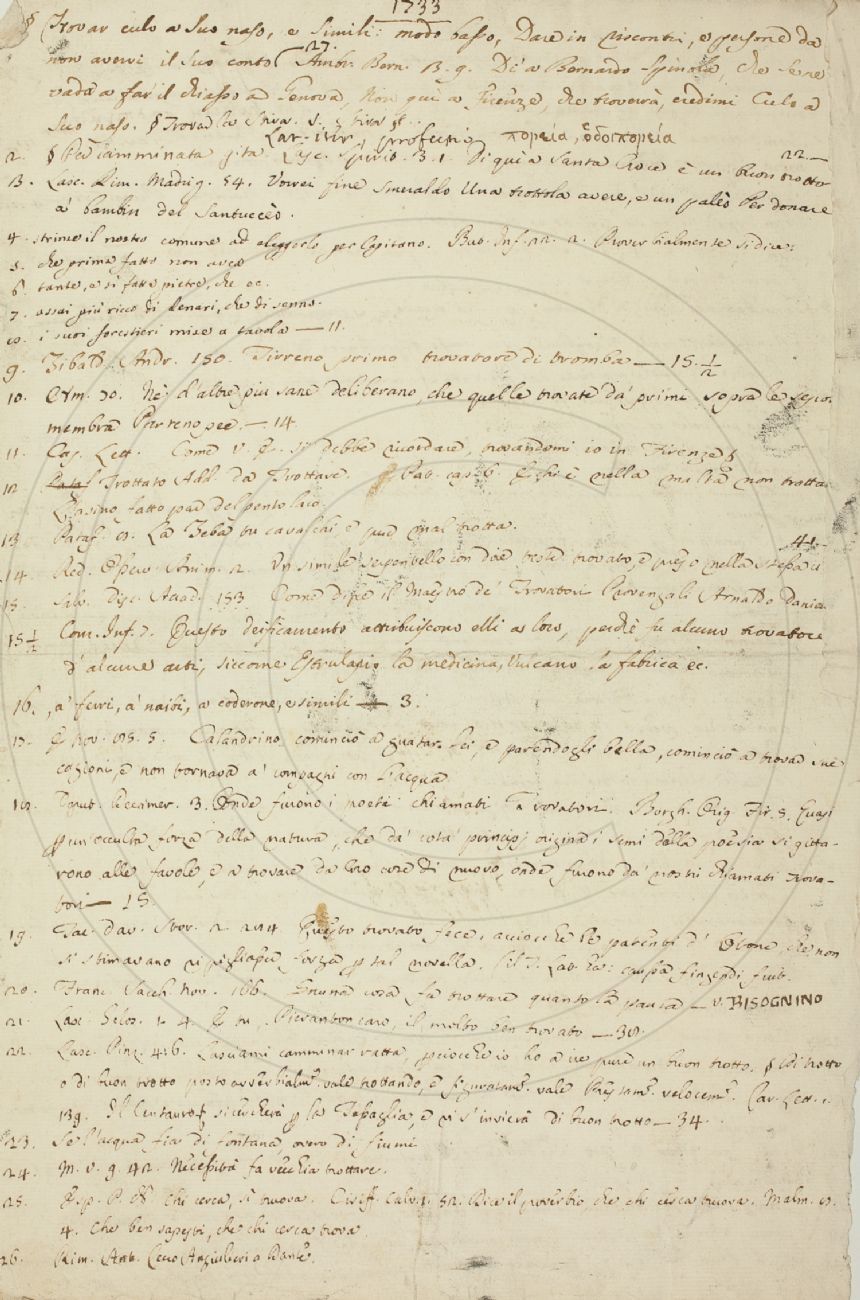 1733
§ Trovar culo a suo naso, e simili: modo basso, Dare in riscontri, e persone da
non avervi il suo conto 27. Ambr. Bern. 3. 9. Di' a Bernardo Spinola, che se ne
vada a far il chiasso a Genova, Non qui a Firenze, che troverà, credimi Culo a
suo naso. § Trovar la stiva. V. stiva §.
Lat. iter, profectio πορεία, ὁδοιπορεία
2. § Per camminata gita. Spirit. 3. 1. Di qui a Santa Croce è un buon trotto 22.
3. Lasc. Rim. Madrig. 54. Vorrei fine smeraldo Una trottola avere, e un palèo per donare
a' bambin del Santuccio.
4. strinse il nostro comune ad eleggerlo per Capitano. But. Inf. 22. 2. Proverbialmente si dice:
5. che prima fatto non avea
6. tante, e sì fatte pietre, che ec.
7. assai più ricco di denari, che di senno.
8. i suoi forestieri mise a tavola — 11.
9. Zibald. Andr. 150. Tirreno primo trovatore di tromba — 15. 1/2
10. Nè d'altre più sane deliberano, che quelle trovate da' primi sopra le
membra Partenopee. — 14.
11. Cas. Lett. Come V. si debbe ricordare, trovandomi io in Firenze §
12. Trottato Add. da Trottare. § Pataff. cap. 6. nella non trotta
L'asino fatto par del pentolaio.
13. Pataff. 8. La Zeba tu cavalchi e può mal trotta.
14. Red. Osserv. Anim. 2. Un simile serpentello con due teste trovato, e preso nella 41.
15. Salv. Disc. Accad. 153. Come dice il Maestro de' Trovatori Provenzali Arnaldo Danie
15 1/2 Com. Inf. 7. Questo deificamento attribuiscono elli a loro, perchè fu alcuno trovatore
d'alcune arti, siccome Esculapio la medicina, Vulcano la fabrica ec.
16. a' ferri, a' naibi, a coderone, e simili — 3.
17. Nov. 85. 5. Calandrino cominciò a guatar lei, e parendogli bella, cominciò a trovar sue
cagioni, e non tornava a' compagni con l'acqua
18. Decamer. 3. Onde furono i poeti chiamati Trovatori. Borgh. Orig. Fir. 5. Quasi
per un'occulta forza della natura, che da' cota' principj origina i semi della poesia si gitta-
rono alle favole, e a trovare da loro cose di nuovo, onde furono da' nostri chiamati trova-
tori — 15.
19. Tac. Dav. Stor. 2. 284. Questo trovato fece, acciocchè le patenti d' Otone, che non
si stimavano ripigliasser forza per tal novella. (il T. Lat. ha: fingendi fuit.
20. Franc. Sacch. Nov. 166. Niuna cosa fa trottare quanto la paura — v. BISOGNINO
21. Lasc. Gelos. 1. 4. E tu, Pierantonio caro, il molto ben trovato — 38.
22. Lasc. Pinz. 4. 6. Lasciami camminar ratta, perciocchè io ho a ire pure un buon trotto. § Di trotto
o di buon trotto posto avverbialm. vale trottando, e figuratam. vale Prestam. velocem. Car. Lett. 1.
139. Il Centauro si cercherà per la Tessaglia, e vi s'invierà di buon trotto — 34.
23. Se l'acqua sia di fontana overo di fiumi
24. M. V. 9. 42. Necessità fa vecchia trottare.
25. Esp. P. N. Chi cerca, sì truova. Ciriff. Calv. 1. 52. Dice il proverbio, che chi cerca truova. Malm. 8.
4. Che ben sapesti, che chi cerca trova.
26. Rim. Ant. Cecco Angiulieri a Dante.